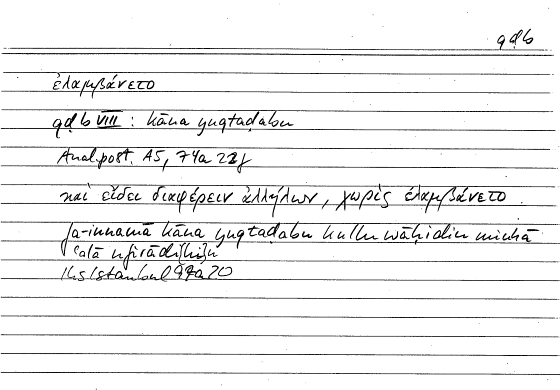 qḍb
ἐλαμβάνετο
qḍb VIII : kāna yuqtaḍabu
Anal. post. A5, 74a 22f
καὶ εἴδει διαφέρειν ἀλλήλων, χωρὶς ἐλαμβάνετο.
fa-innamā kāna yuqtaḍabu kullu wāḥidin minhā
ʿalā nfirādi[hi]
Hs Istanbul 97a20